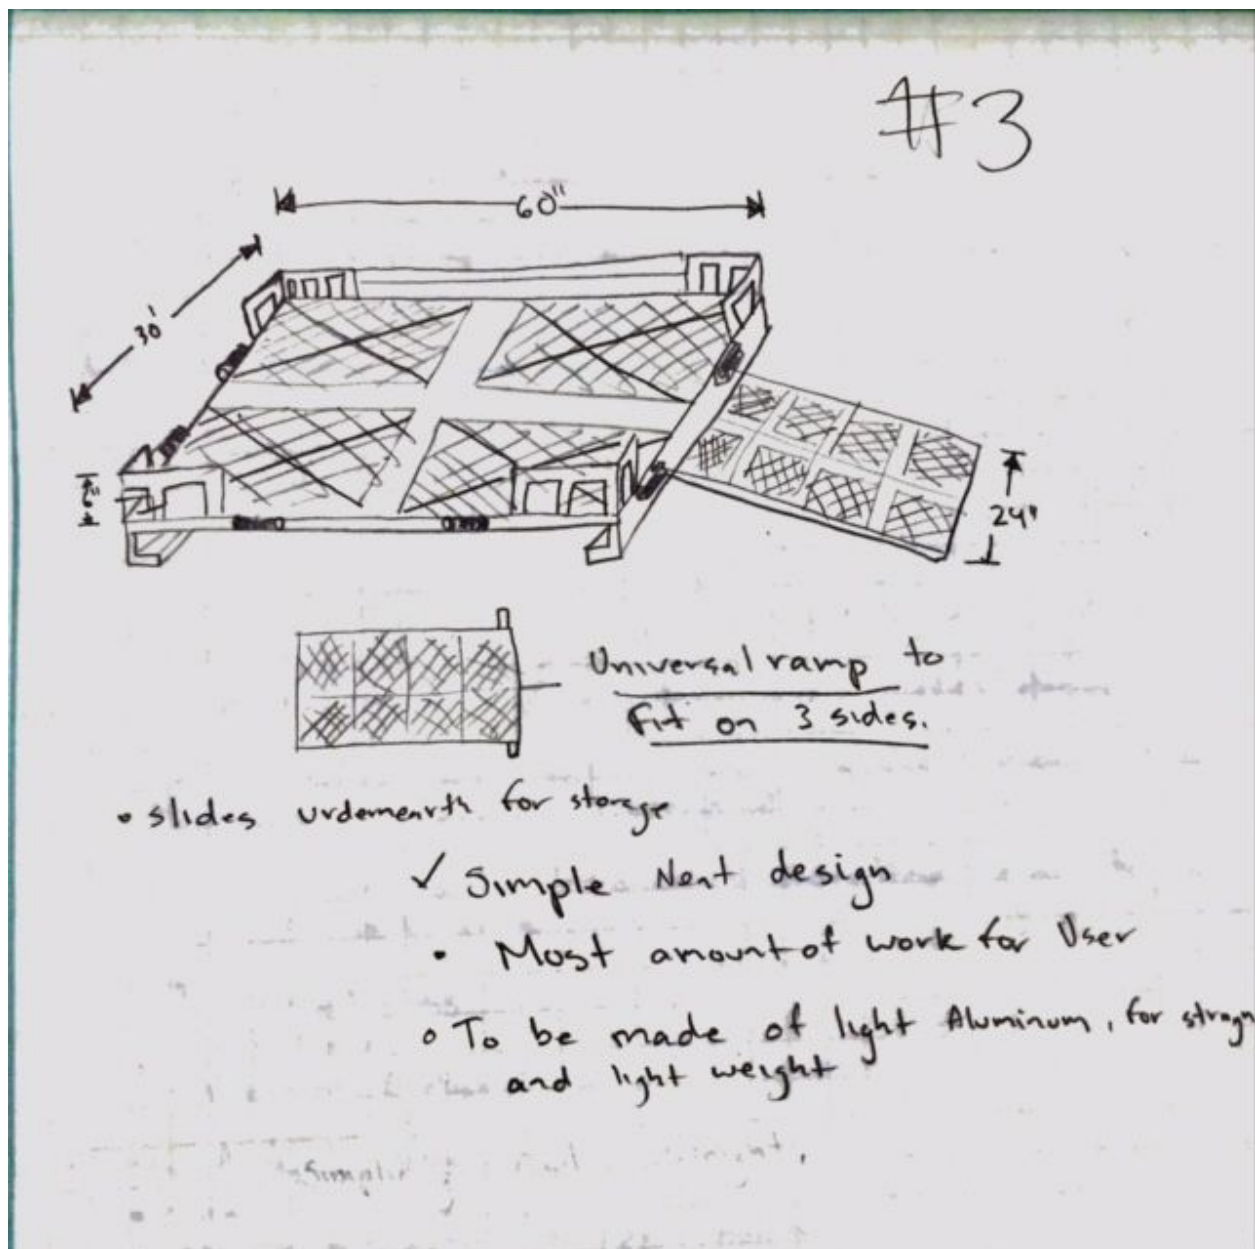 #3
60"
30'
6"
24"
Universal ramp to
fit on 3 sides.
• slides urdernearth for storage
✓ Simple Neat design
• Most amount of work for User
• To be made of light Aluminum, for
and light weight